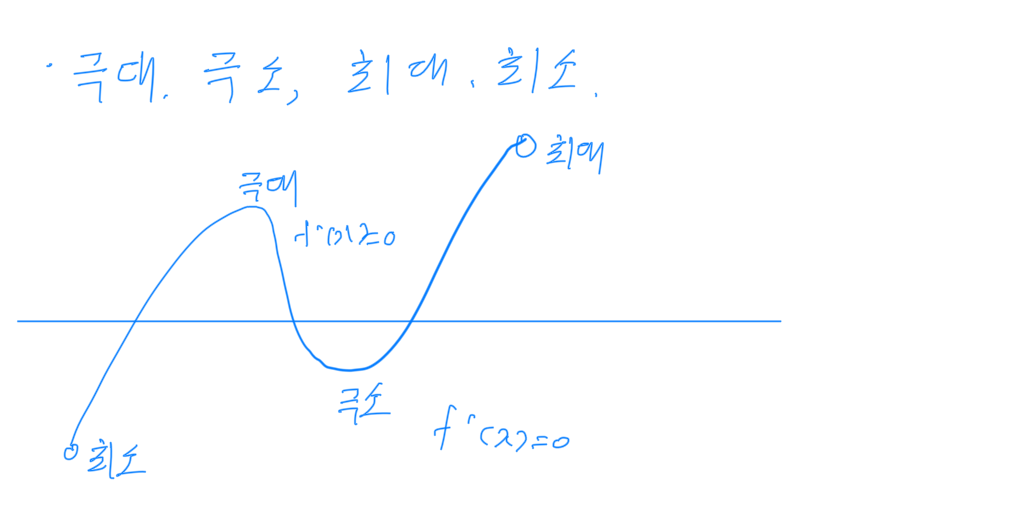 · 극대. 극소, 최대. 최소.
최대
극대
f'(x)=0
극소
f'(x)=0
최소